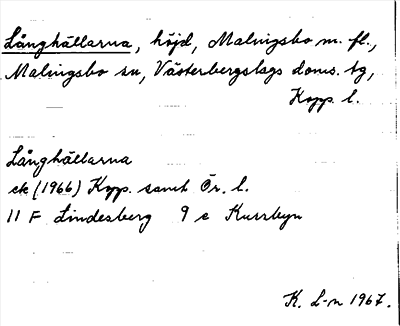 Långhällarna, höjd, Malingsbo m. fl.,
Malingsbo sn, Västerbergslags doms. tg,
Kopp. l.
Långhällarna
ek (1966) Kopp. samt Ör. l.
11 F Lindesberg 9 c Kursbyn
K. L-n 1967.